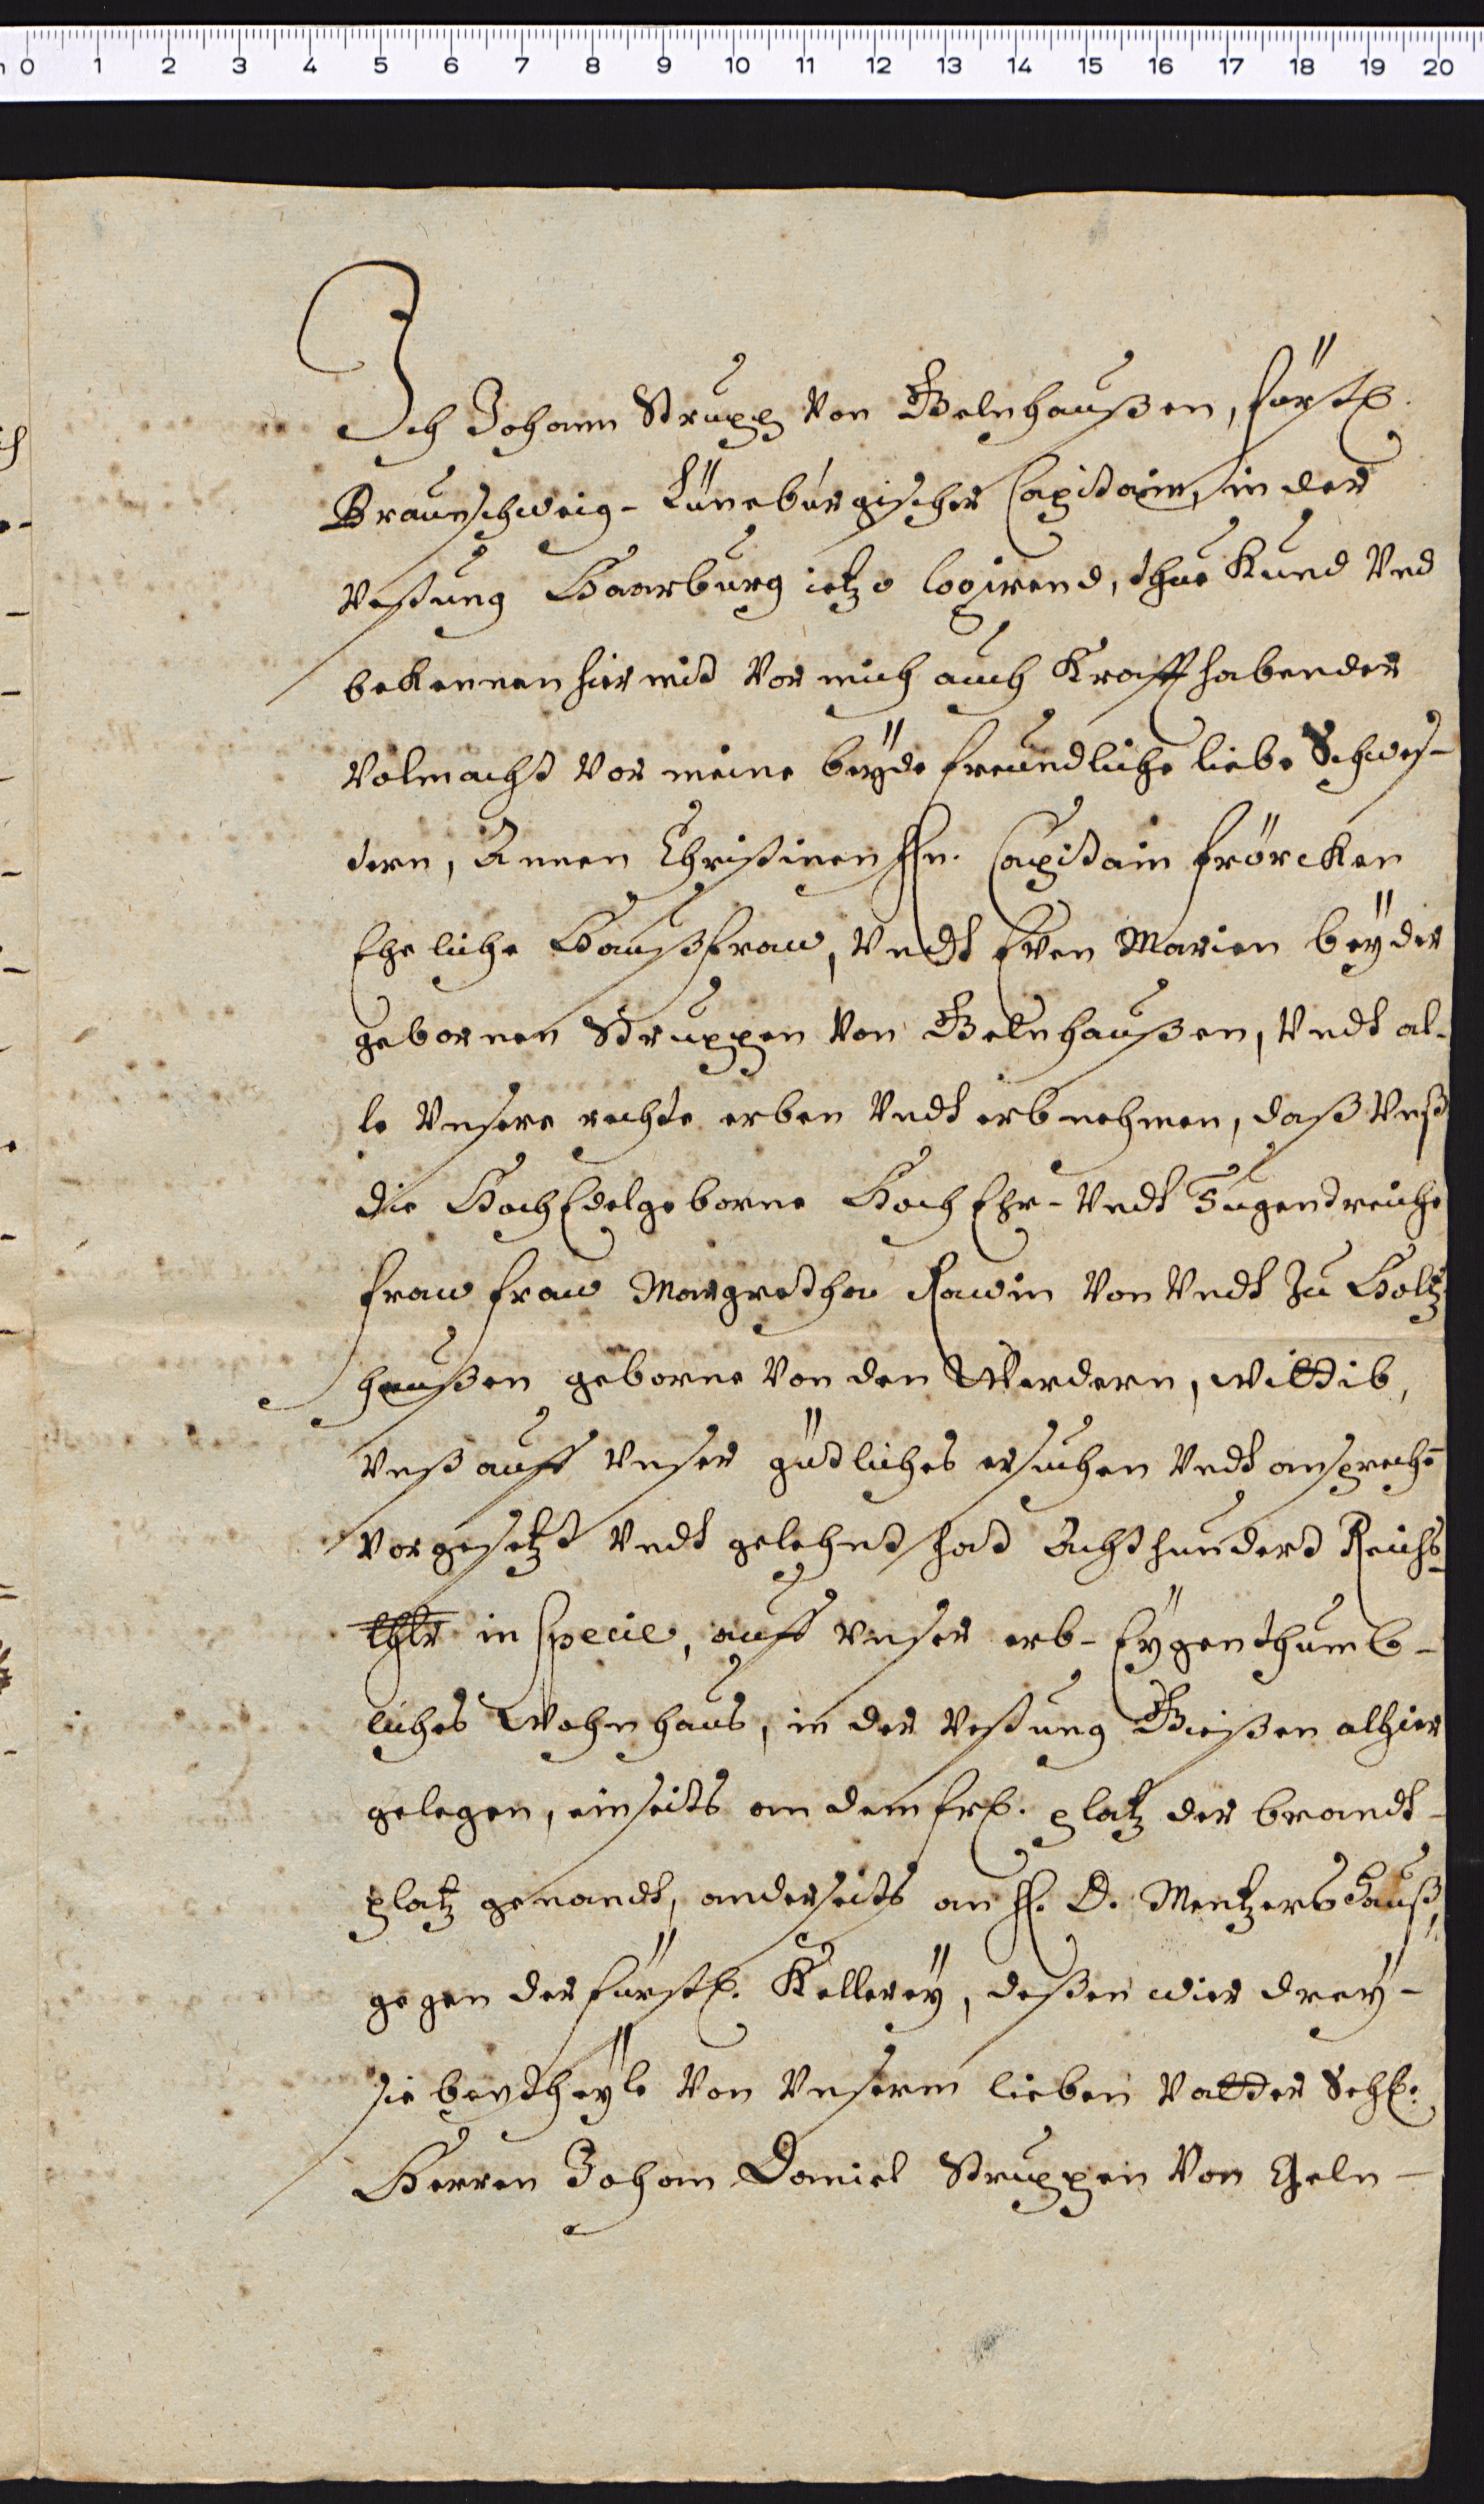 0 1 2 3 4 5 6 7 8 9 10 11 12 13 14 15 16 17 18 19 20
Ich Johann Strupp von Gelnhaußen, fürstl.
Braunschweig-Lüneburgischer Capitain, in der
Vestung Haarburg ietzo logirend, thue Kund Vnd
bekennen hiermit vor mich auch Krafft habender
Volmacht vor meine beÿde freundliche liebe Schwes-
tern, Annen Christinen Hn. Capitain Frörcken
Eheliche Haußfraw, Vndt Even Marien beÿder
gebornen Struppen von Gelnhaußen, Vndt al-
le Vnsere rechte erben Vndt erbnehmen, daß Vnß
die HochEdelgeborne HochEhr- Vndt Tugendreiche
fraw fraw Margretha Rawin von Vndt zu Holtz
haußen geborne von den Werdern, wittib,
Vnß auff Vnser gütliches ersuchen Vndt ansprechē
vorgesetzt Vndt gelehnt hat Achthundert Reichs-
thlr in specie, auff Vnser erb- Eÿgenthumb-
liches Wohnhaus, in der Vestung Gießen alhier
gelegen, einseits an dem frl. platz der brandt-
platz genandt, anderseits an H. D. Mentzers Hauß,
gegen der fürstl. Kellereÿ, deßen wier dreÿ-
siebentheÿle von Vnserm lieben Vatter Sehl.
Herren Johan Daniel Struppen von Geln-